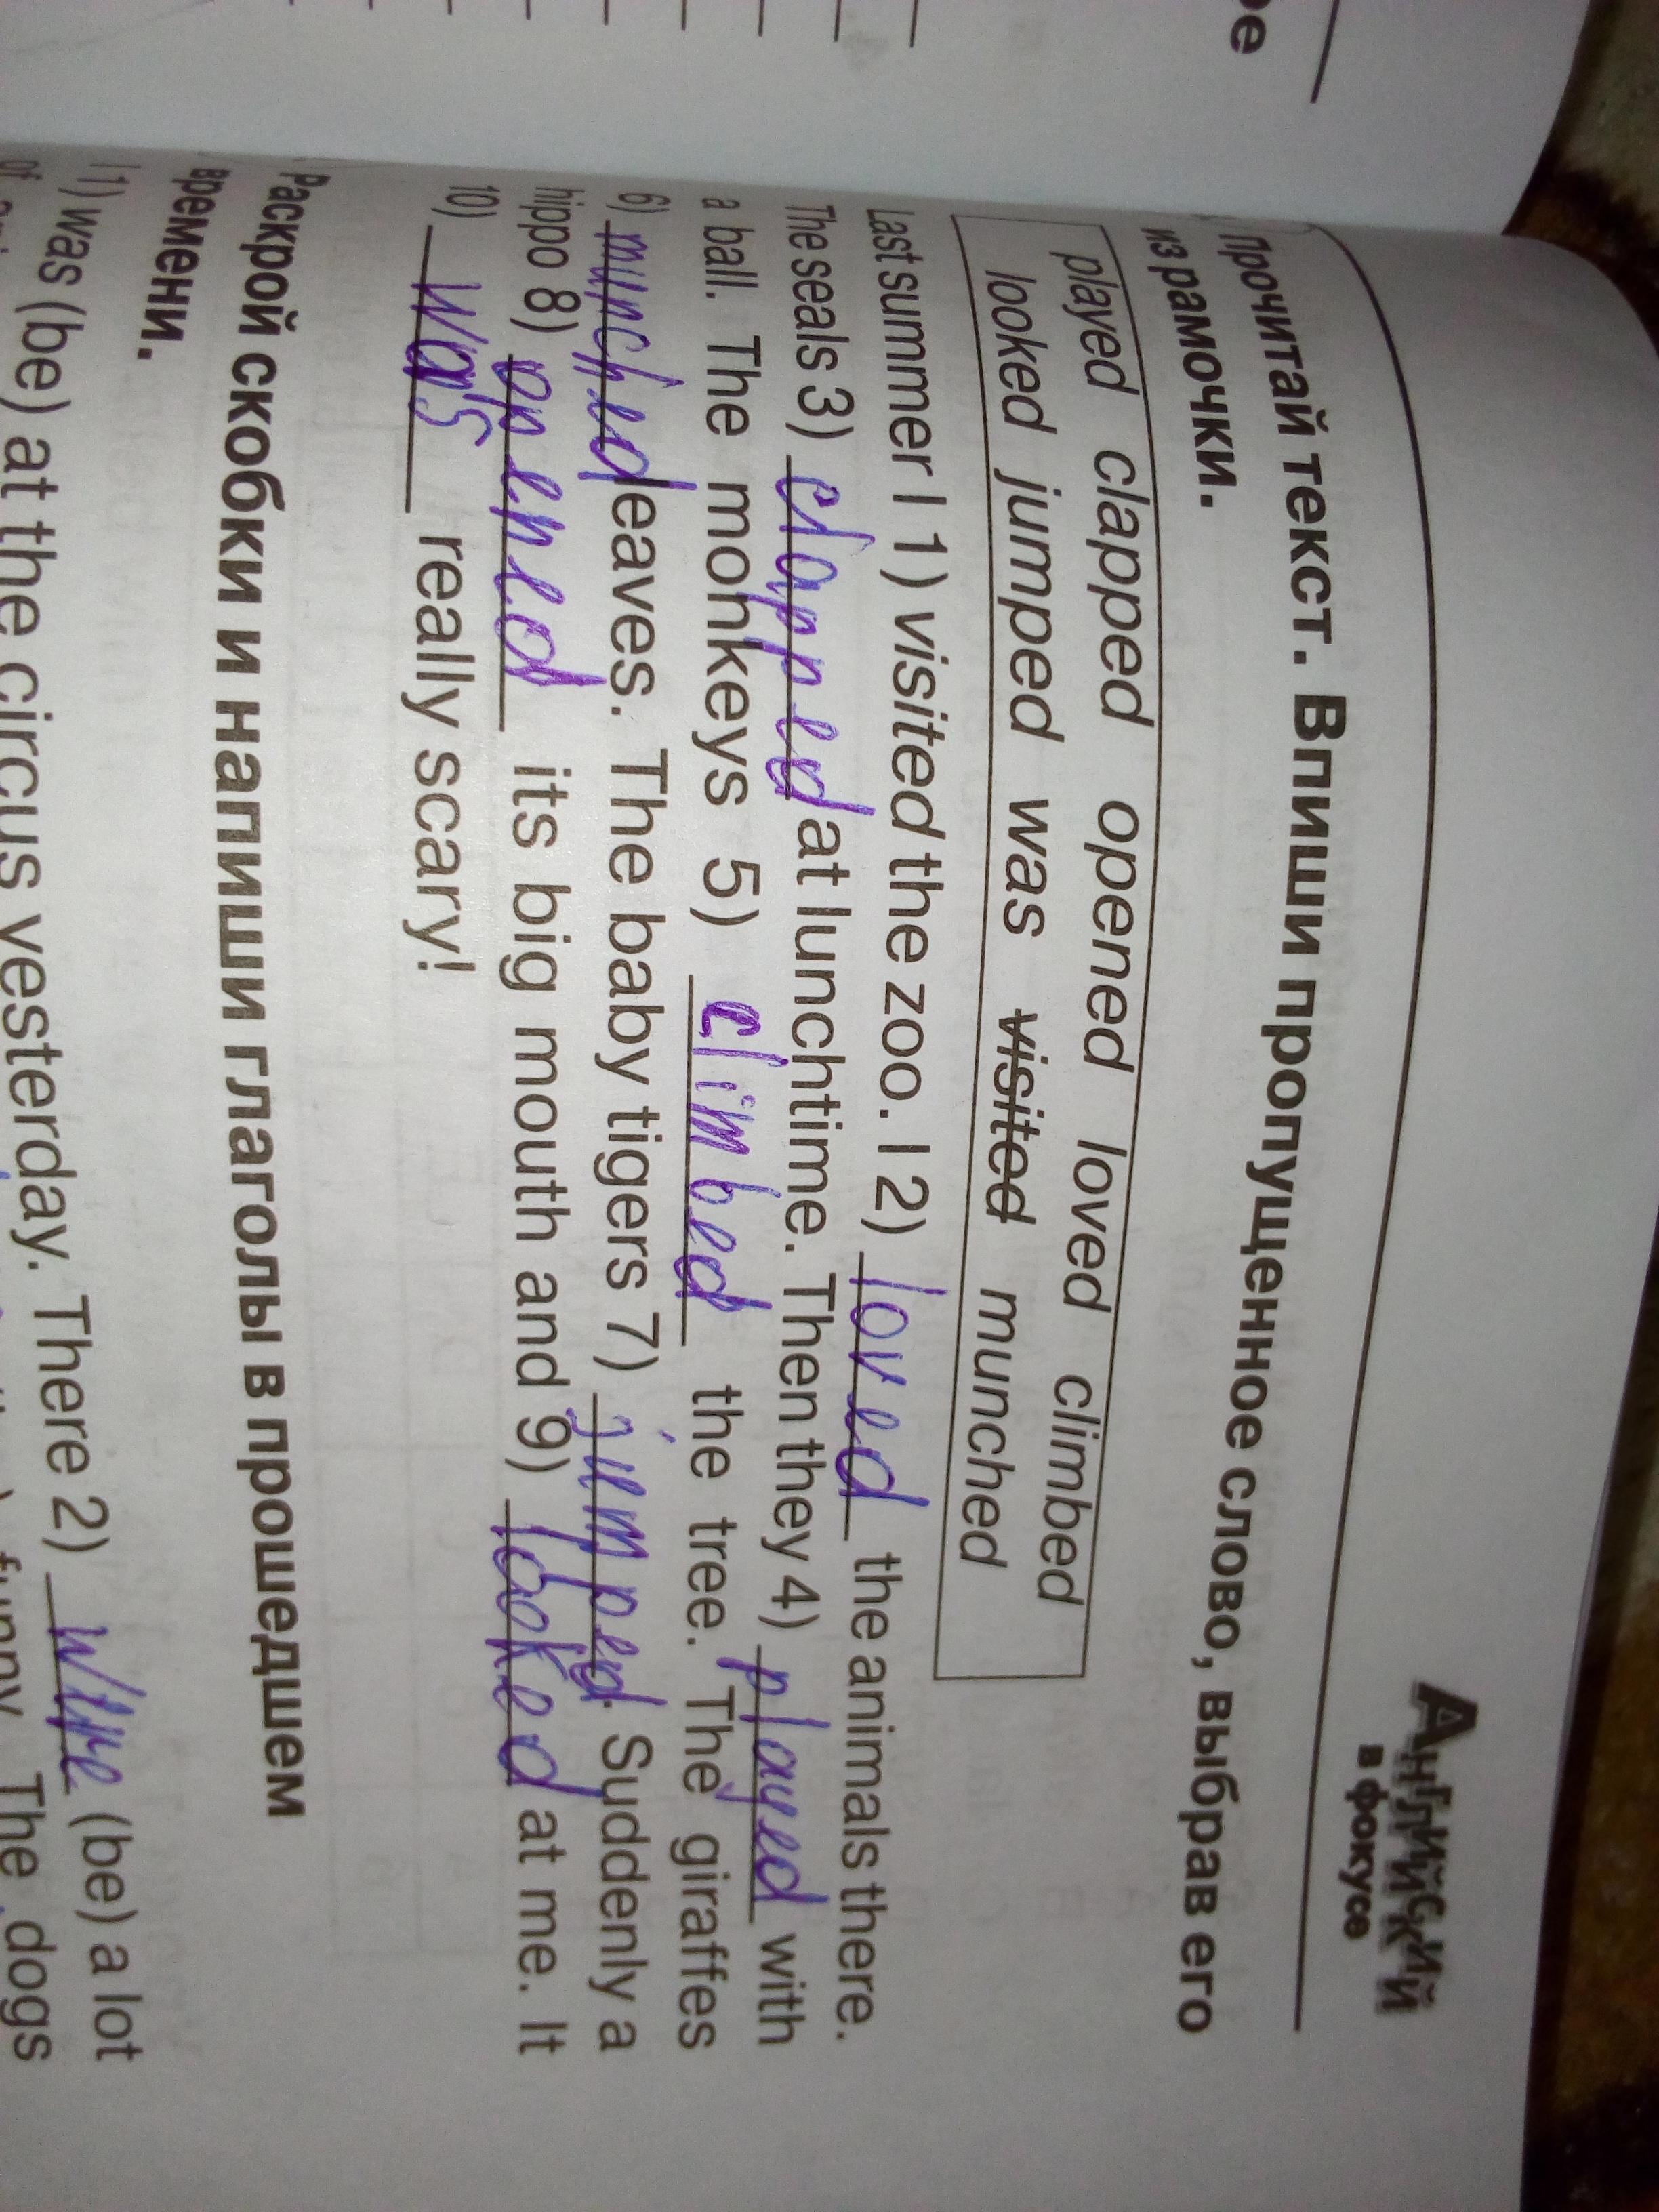 Английский
в фокусе
прочитай текст. Впиши пропущенное слово, выбрав его
из рамочки.
played clapped opened loved climbed
looked jumped was visited munched
Last summer I 1) visited the zoo. I 2) loved the animals there.
The seals 3) clapped at lunchtime. Then they 4) played with
a ball. The monkeys 5) climbed the tree. The giraffes
6) munched leaves. The baby tigers 7) jumped. Suddenly a
hippo 8) opened its big mouth and 9) looked at me. It
10) was really scary!
Раскрой скобки и напиши глаголы в прошедшем
времени.
I 1) was (be) at the circus yesterday. There 2) were (be) a lot
of funny. The dogs